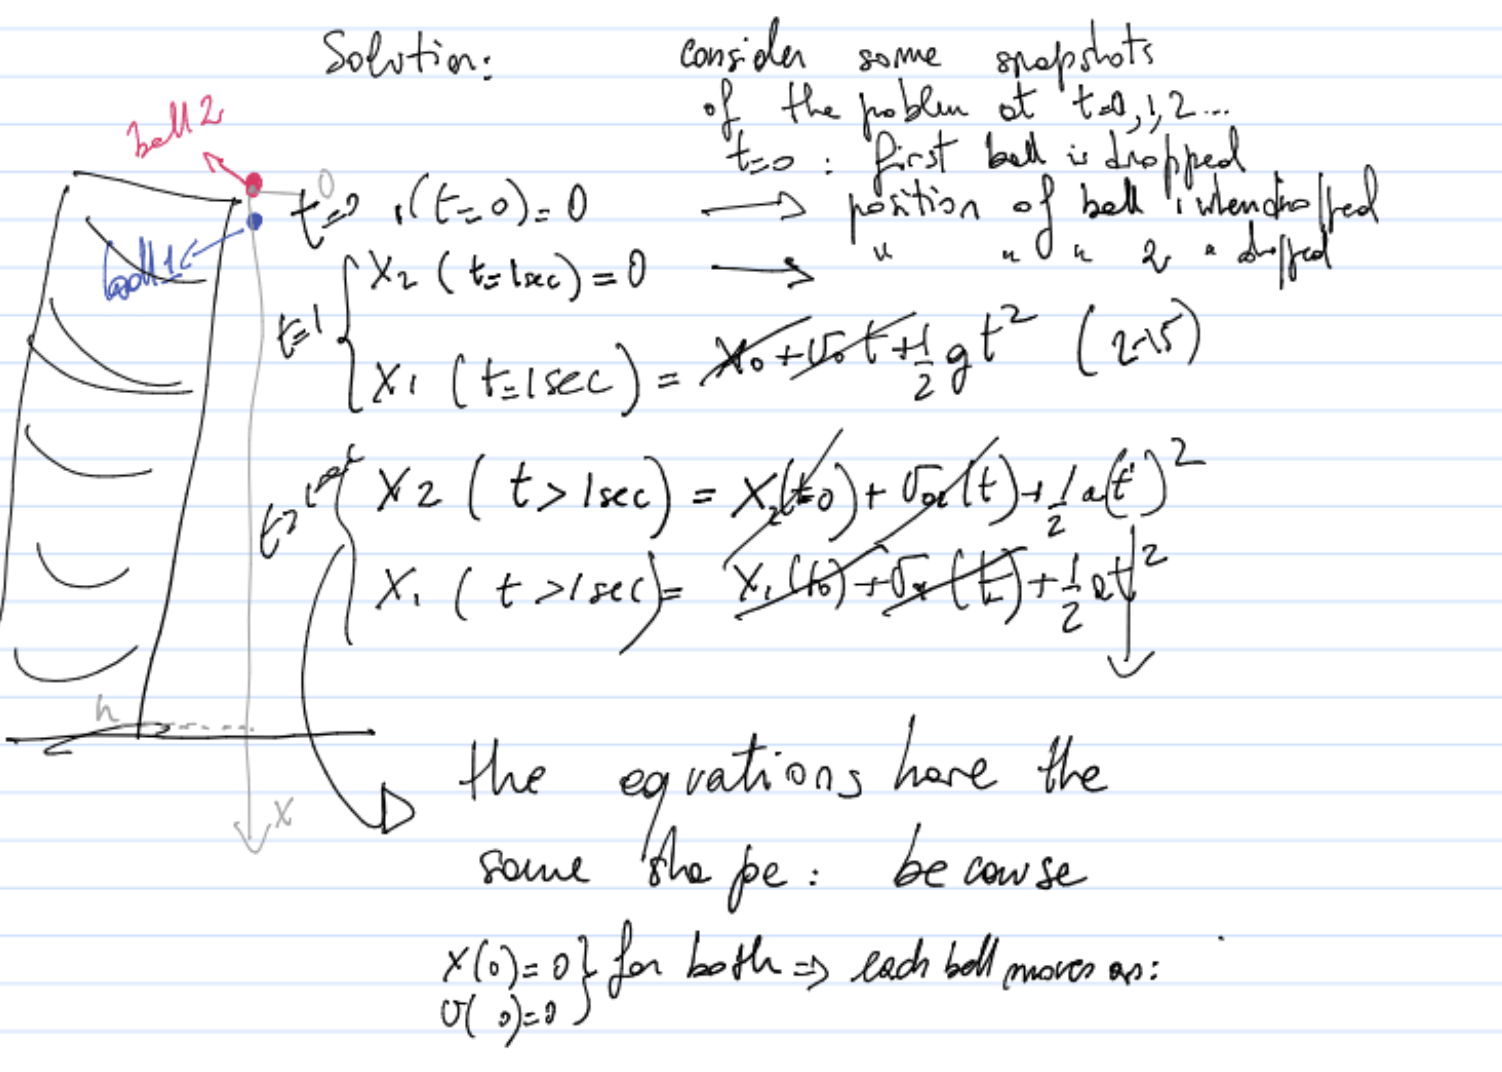 Solution:
consider some snapshots
of the problem at t=0,1,2...
t=0 : first ball is dropped
ball 2
0
t=0 1(t=0)=0 → position of ball 1 when dropped
ball 1
t=1 { X2 (t=1sec)=0 → " " " 2 " dropped
X1 (t=1sec) = X0+V0t+1/2 g t² (2-15)
X2 (t>1sec) = X2(t=0)+V02(t)+1/2 a(t)²
X1 (t>1sec) = X1(t0)+V01(t)+1/2 at²
h
X
the equations have the
same shape: because
X(0)=0 } for both ⇒ each ball moves as:
V(0)=0